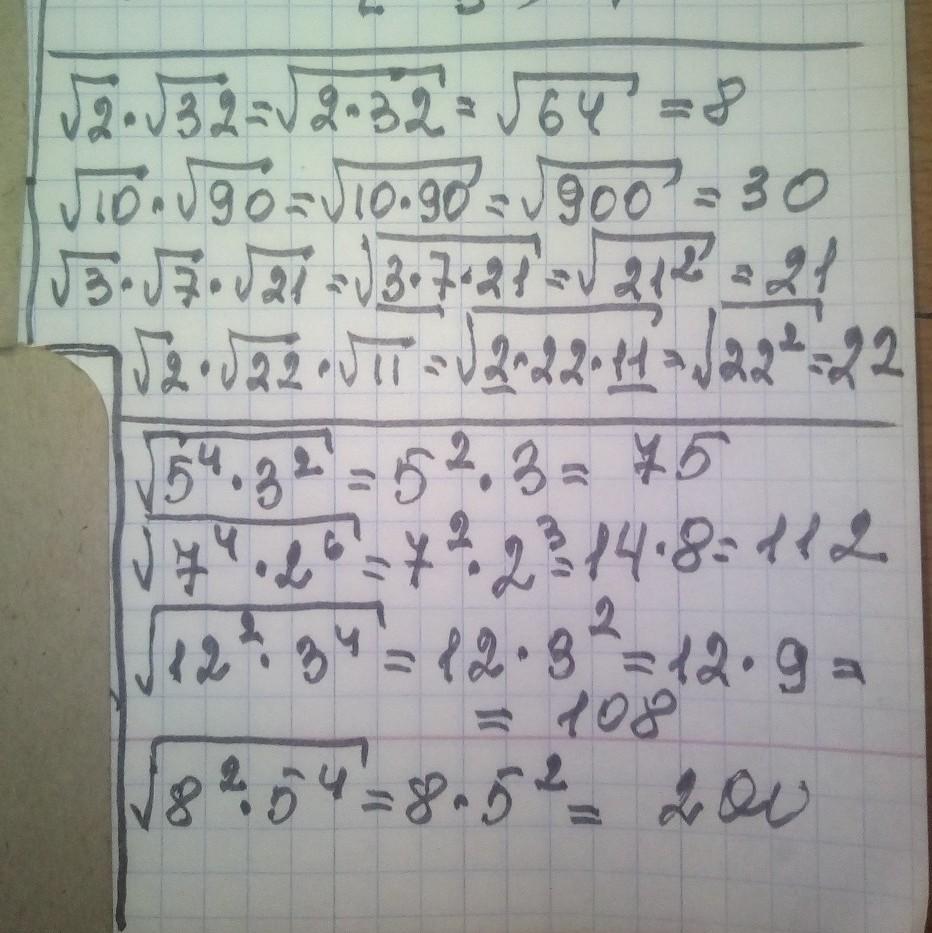 √2·√32=√(2·32)=√64=8
√10·√90=√(10·90)=√900=30
√3·√7·√21=√(3·7·21)=√(21²)=21
√2·√22·√11=√(2·22·11)=√(22²)=22
√(5⁴·3²)=5²·3=75
√(7⁴·2⁶)=7²·2³=14·8=112
√(12²·3⁴)=12·3²=12·9=
=108
√(8²·5⁴)=8·5²=200